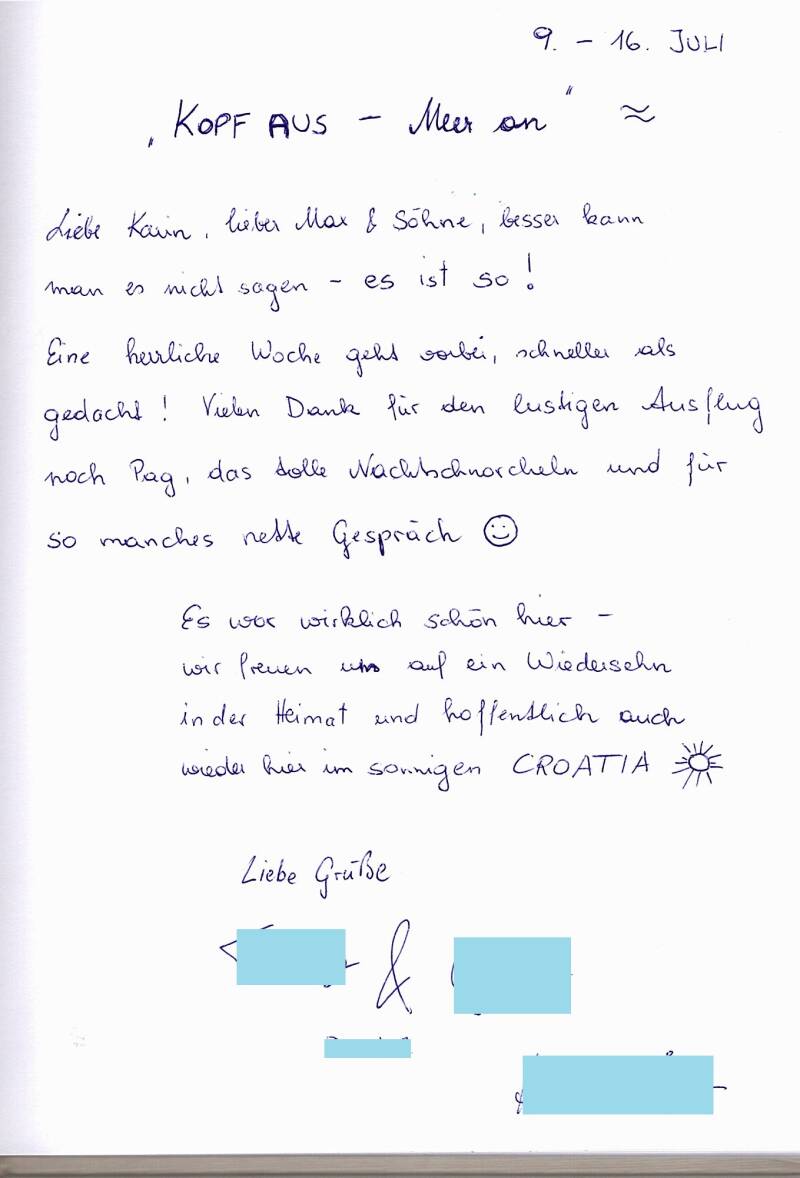 9. – 16. JULI
„KOPF AUS – Meer an" ≈
Liebe Karin, lieber Max & Söhne, besser kann
man es nicht sagen – es ist so!
Eine herrliche Woche geht vorbei, schneller als
gedacht! Vielen Dank für den lustigen Ausflug
nach Pag, das tolle Nachtschnorcheln und für
so manches nette Gespräch ☺
Es war wirklich schön hier –
wir freuen uns auf ein Wiedersehn
in der Heimat und hoffentlich auch
wieder hier im sonnigen CROATIA ☀
Liebe Grüße
&